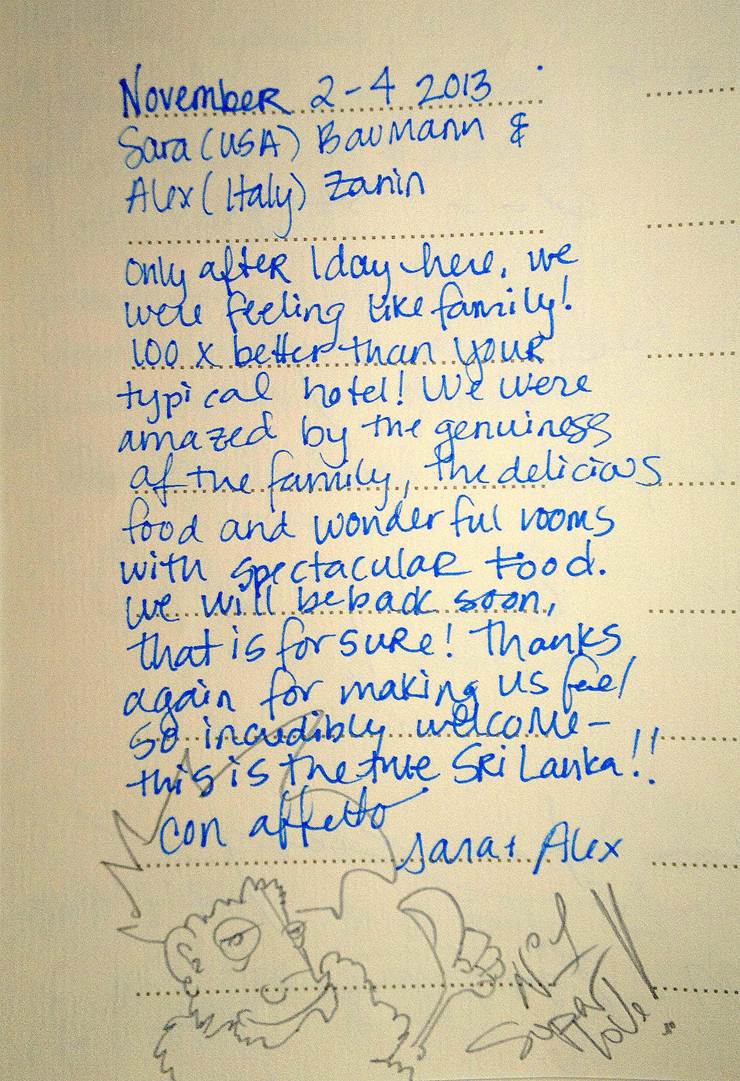 November 2-4 2013
Sara (USA) Baumann &
Alex (Italy) Zanin
Only after 1 day here, we
were feeling like family!
100 x better than your
typical hotel! We were
amazed by the genuiness
of the family, the delicious
food and wonderful rooms
with spectacular food.
We will be back soon,
that is for sure! Thanks
again for making us feel
so incredibly welcome-
this is the true Sri Lanka!!
con affetto
Sara + Alex
N°1
Super